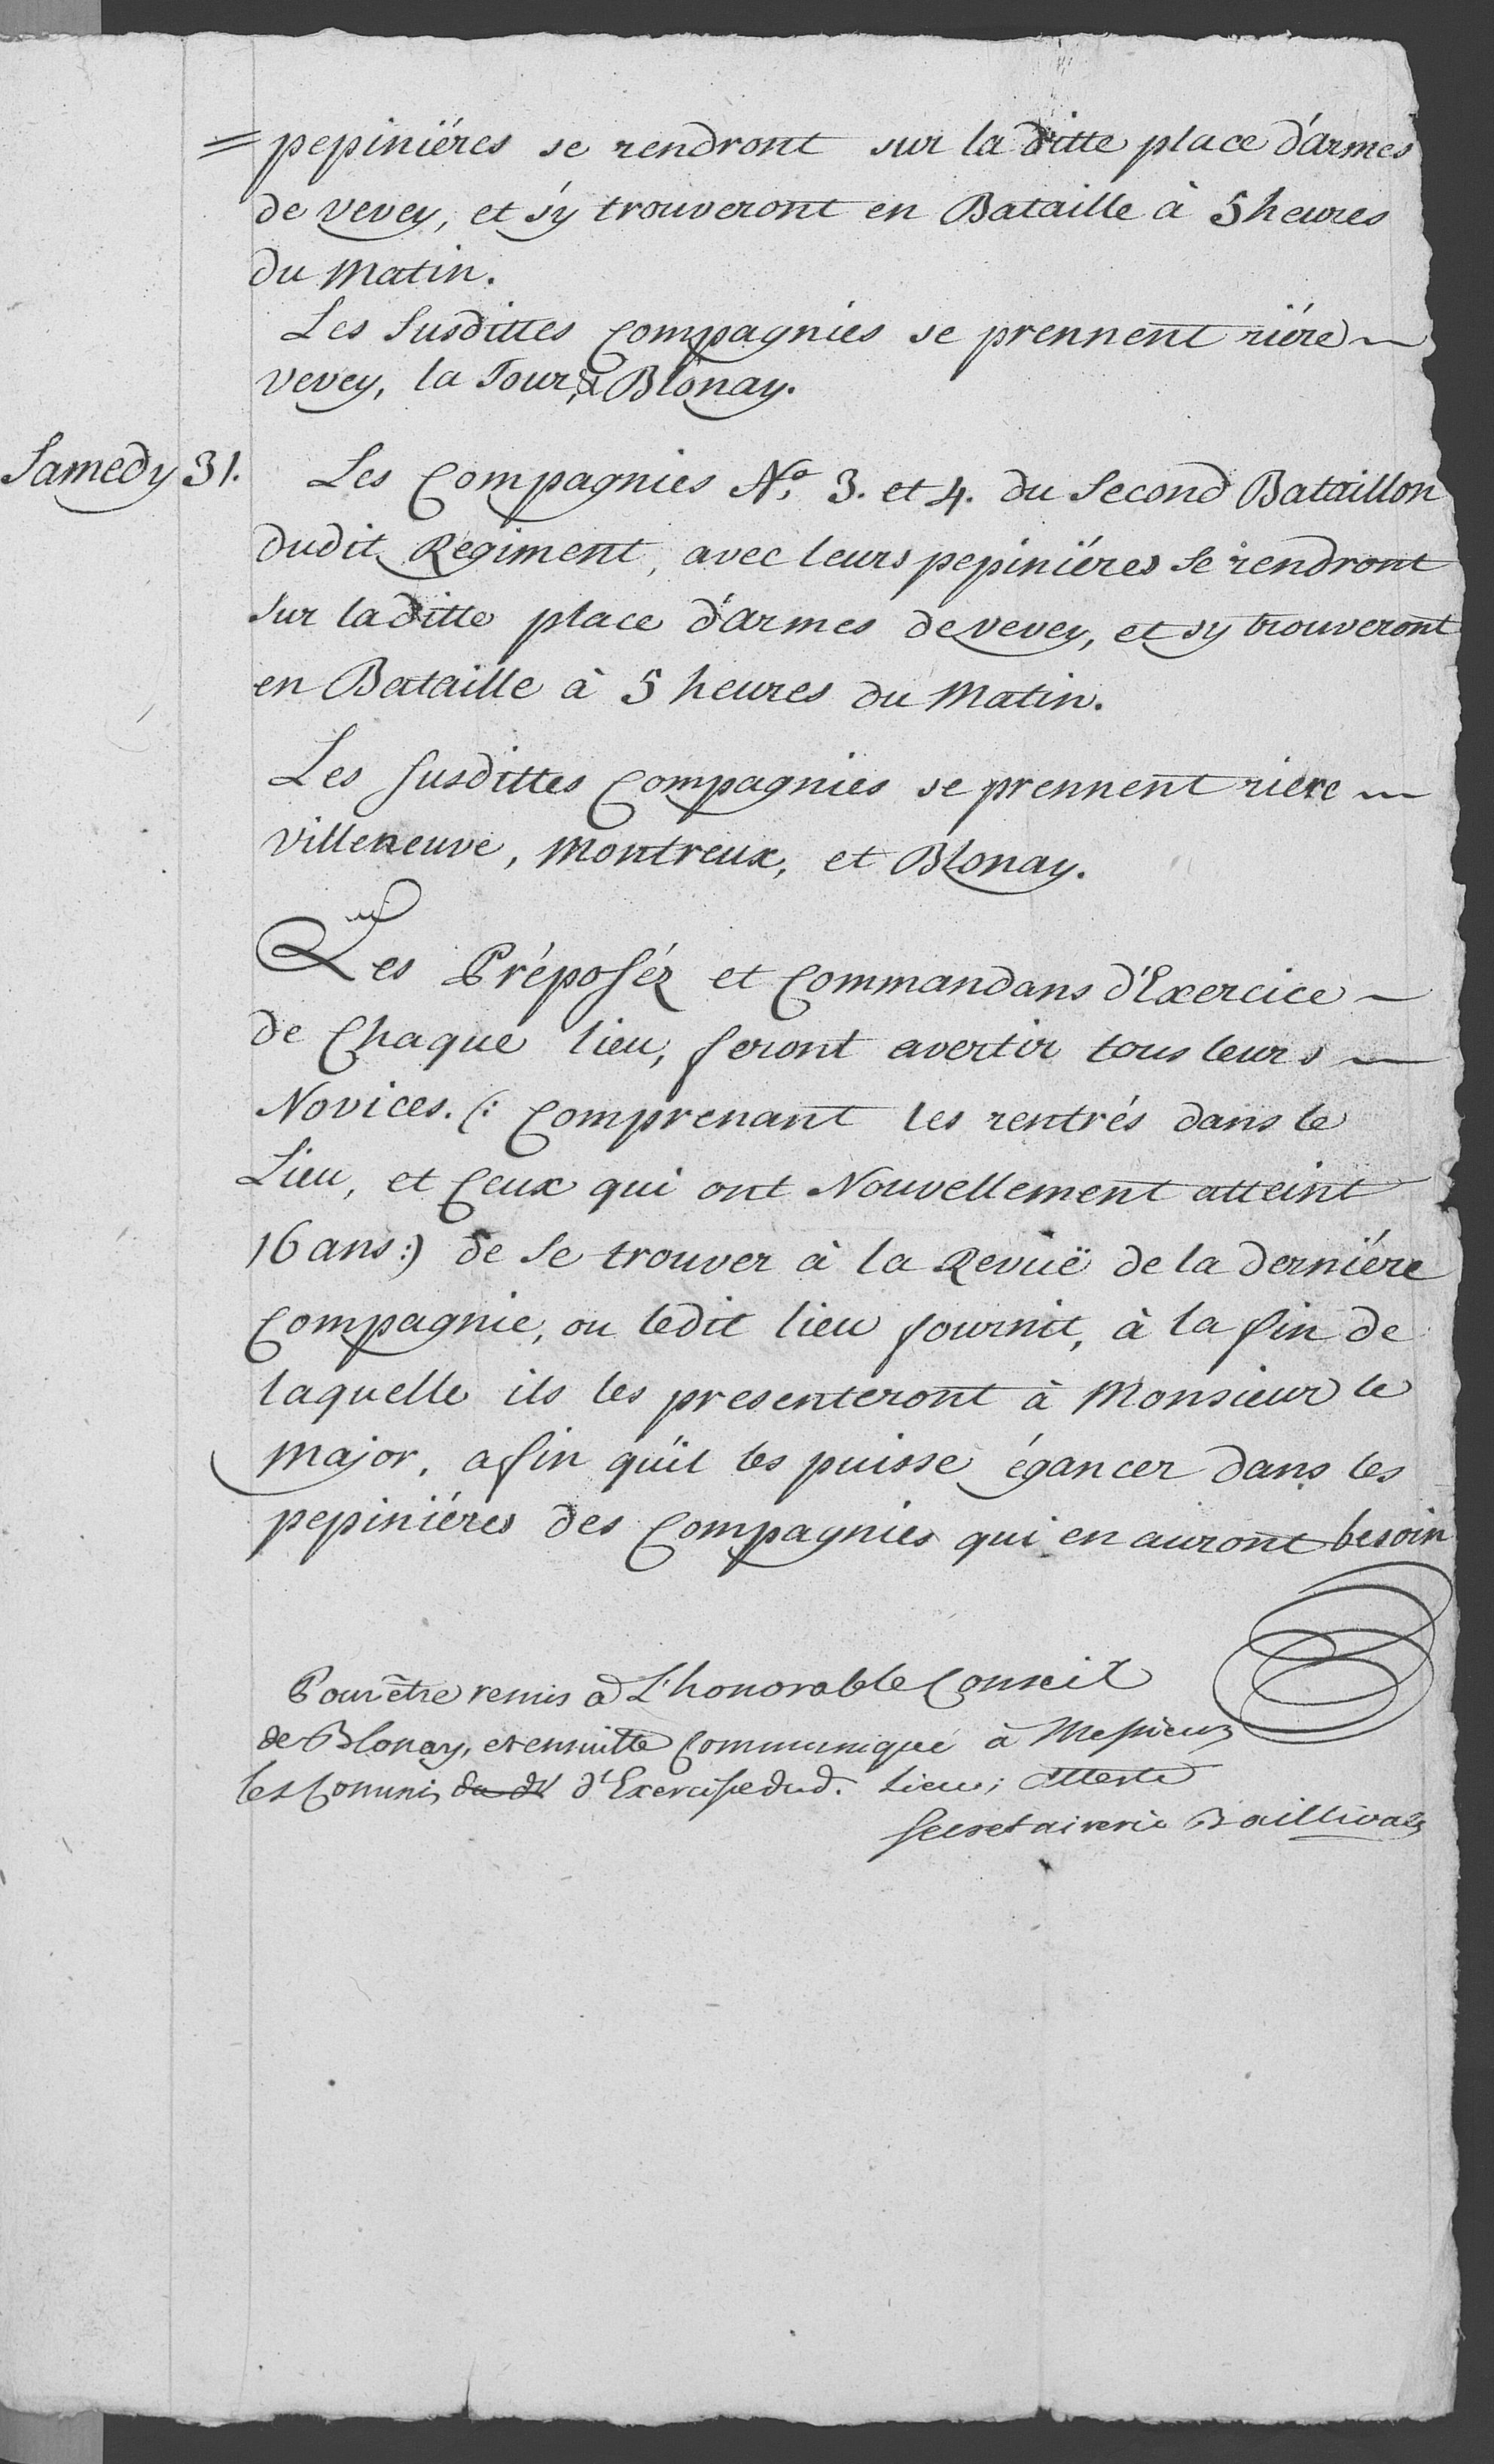 = pepiniéres se rendront sur la ditte place d'armes
de vevey, et s'y trouveront en Bataille à 5 heures
du Matin.
Les Susdittes Compagnies se prennent riére
vevey, la Tour, & Blonay.
Samedy 31. Les Compagnies No. 3. et 4. du Second Bataillon
dudit Regiment, avec leurs pepiniéres se rendront
sur laditte place d'armes de vevey, et s'y trouveront
en Bataille à 5 heures du Matin.
Les Susdittes Compagnies se prennent riere
villeneuve, Montreux, et Blonay.
Les Préposéz et Commandans d'Exercice
de Chaque lieu, feront avertir tous leurs
Novices. (: Comprenant les rentrés dans le
Lieu, et Ceux qui ont Nouvellement atteint
16 ans :) de se trouver à la Revüe de la derniére
Compagnie, ou ledit lieu fournit, à la fin de
laquelle ils les presenteront à Monsieur le
Major, afin qu'il les puisse égancer dans les
pepiniéres des Compagnies qui en auront besoin
Pour être remis à L'honorable Conseil
de Blonay, et ensuitte Communiqué à Messieurs
les Commis d'Exercise dud. Lieu; Atteste
Secretairerie Baillivale